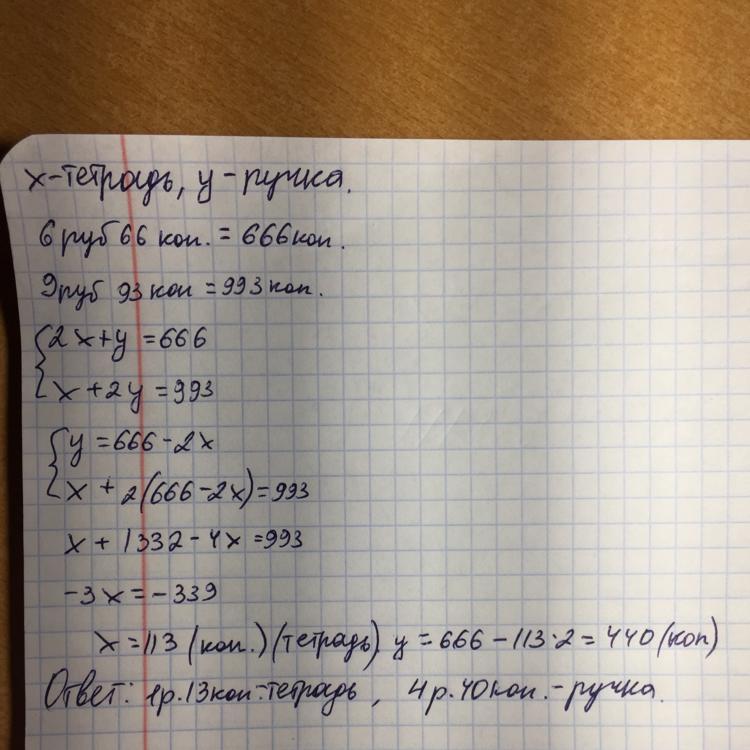 х-тетрадь, у-ручка.
6 руб 66 коп. = 666 коп.
9 руб 93 коп = 993 коп.
{2x+y=666
x+2y=993
{y=666-2x
x+2(666-2x)=993
x+1332-4x=993
-3x=-339
x=113 (коп.) (тетрадь) y=666-113·2=440 (коп)
Ответ: 1р.13коп-тетрадь, 4р.40коп.-ручка.